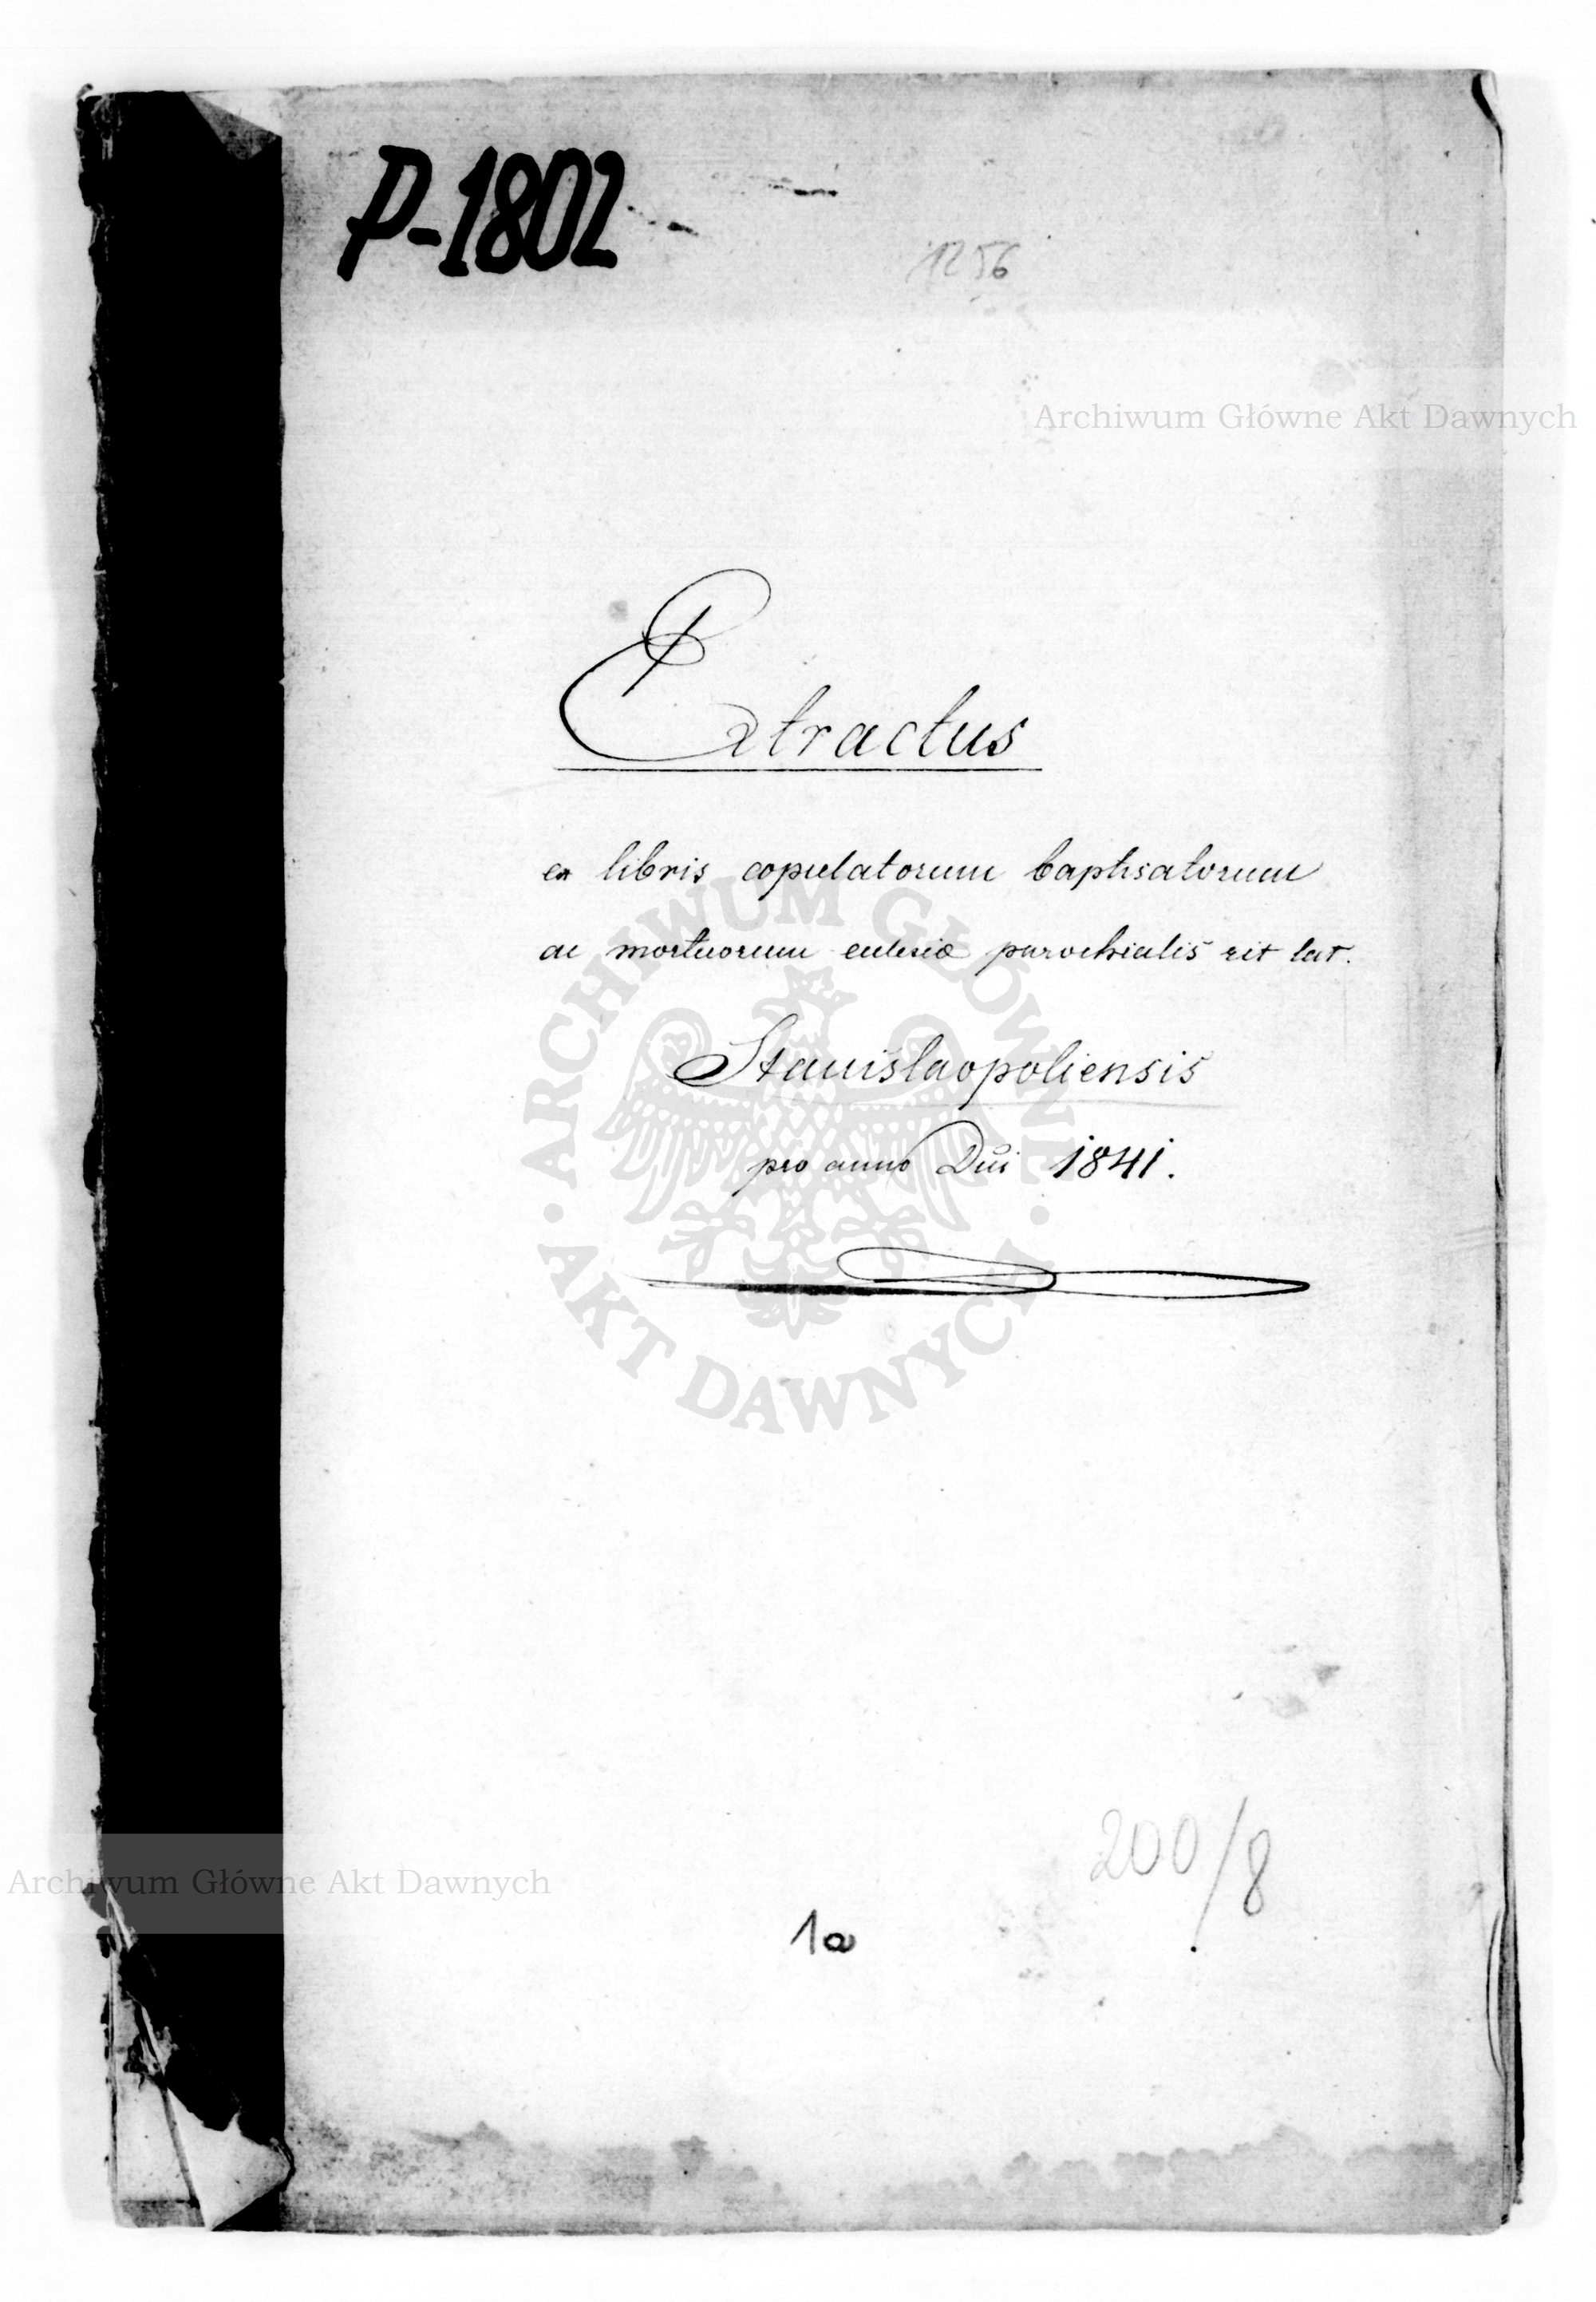 P-1802
1256
Archiwum Główne Akt Dawnych
Extractus
ex libris copulatorum baptisatorum
ac mortuorum eclesiæ parochialis rit lat.
Stanislaopoliensis
pro anno Dni 1841.
ARCHIWUM GŁÓWNE · AKT DAWNYCH ·
200/8
Archiwum Główne Akt Dawnych
1a